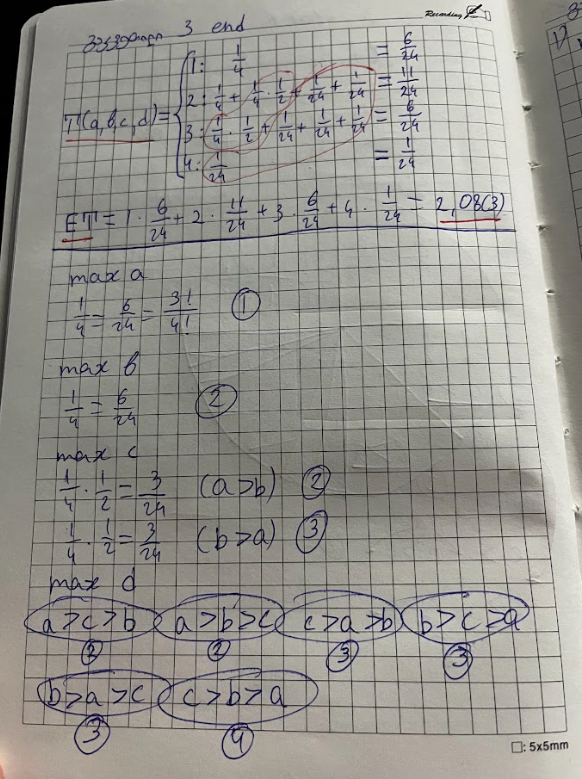 Recording
3 end
1: 1/4 = 6/24
2: 1/4 + 1/4 · 1/2 + 1/24 + 1/24 = 11/24
T(a,b,c,d) =
3: 1/4 · 1/2 + 1/24 + 1/24 + 1/24 = 6/24
4: 1/24 = 1/24
ET = 1 · 6/24 + 2 · 11/24 + 3 · 6/24 + 4 · 1/24 = 2,08(3)
max a
1/4 = 6/24 = 3!/4! 1
max b
1/4 = 6/24 2
max c
1/4 · 1/2 = 3/24 (a>b) 2
1/4 · 1/2 = 3/24 (b>a) 3
max d
a>c>b a>b>c c>a>b b>c>a
2 2 3 3
b>a>c c>b>a
3 4
□: 5x5mm